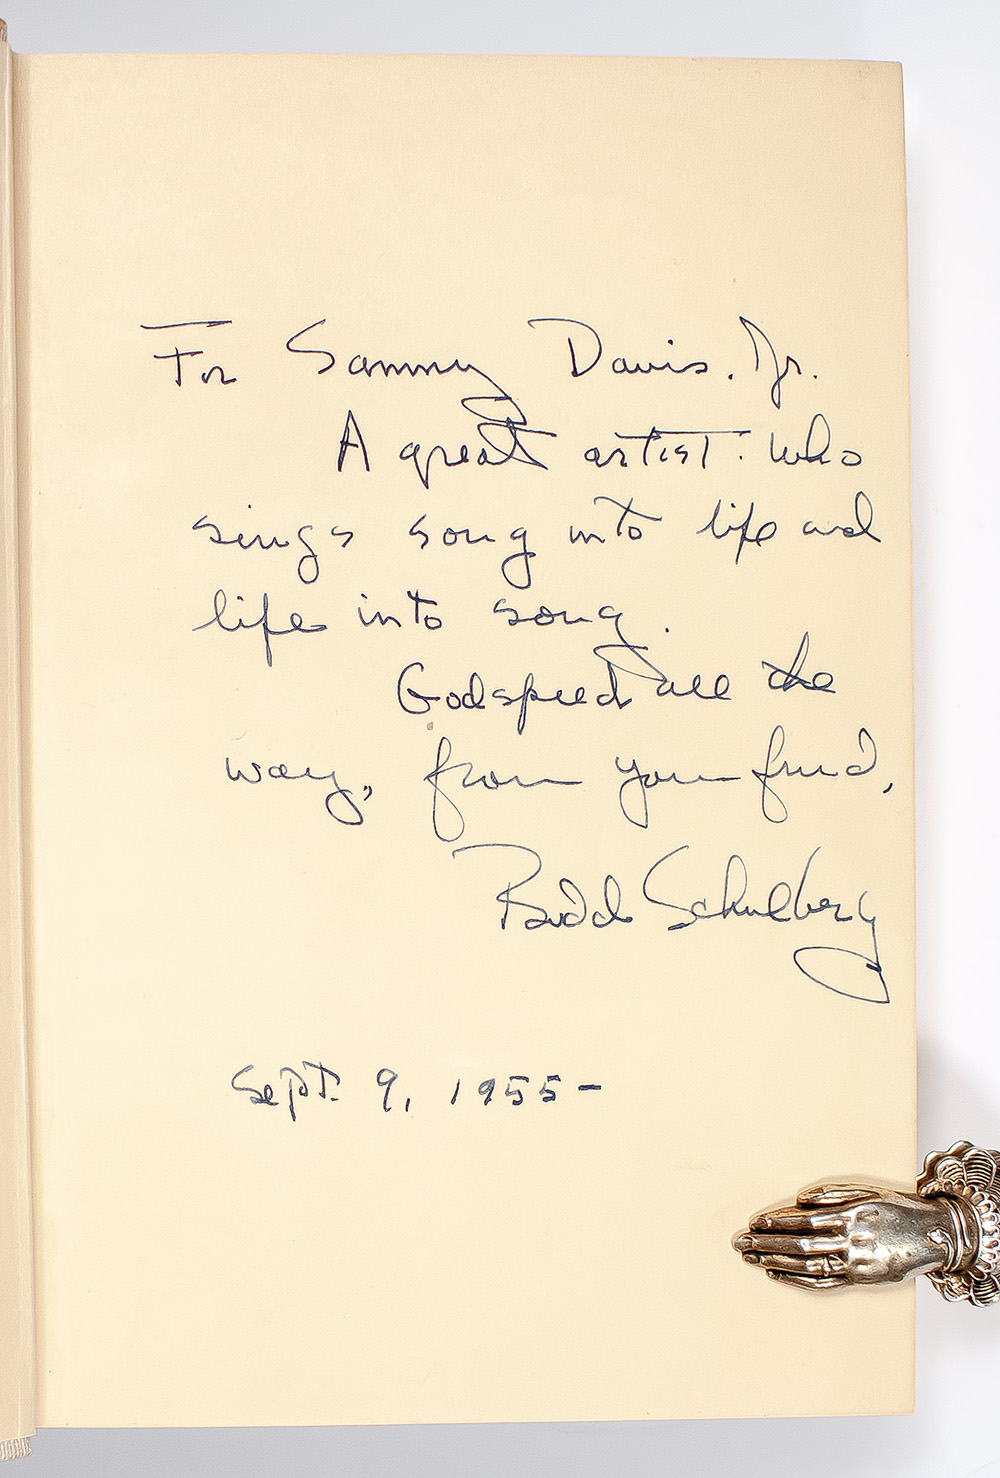 For Sammy Davis. Jr.
A great artist: who
sings song into life and
life into song.
Godspeed all the
way, from your friend,
Budd Schulberg
Sept. 9, 1955-